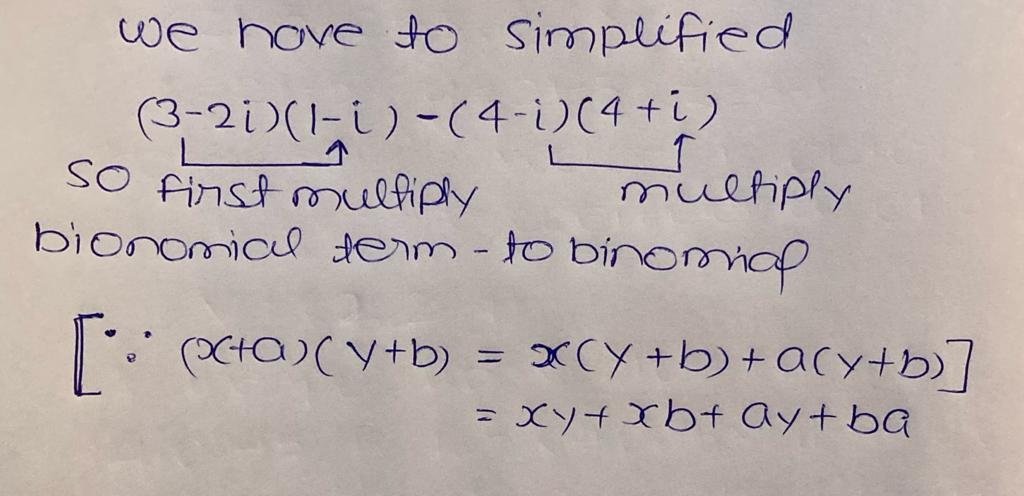 we have to simplified
(3-2i)(1-i)-(4-i)(4+i)
so first multiply multiply
bionomical term - to binomial
[∵ (x+a)(y+b) = x(y+b)+a(y+b)]
= xy+xb+ay+ba